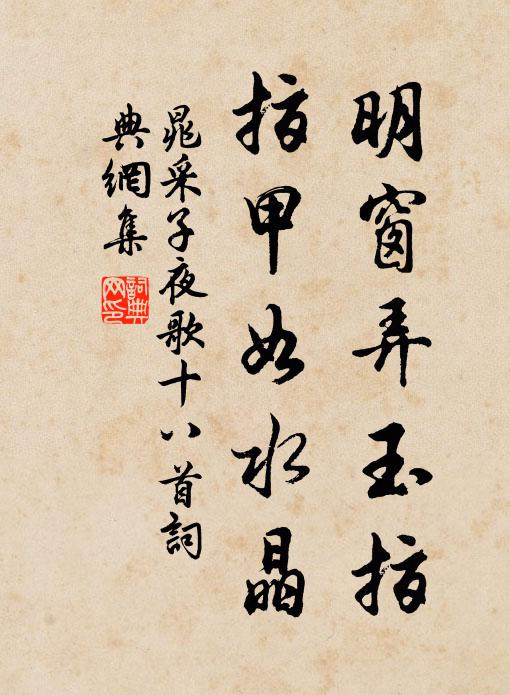 明窗弄玉指
指甲如水晶
晁采子夜歌十八首詞
典網集
詞典
网印